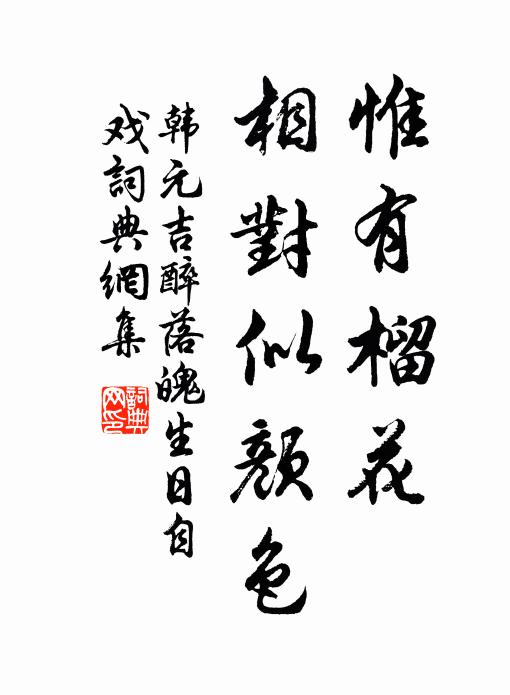 惟有榴花
相對似顏色
韩元吉醉落魄生日自
戏詞典網集
詞典网印